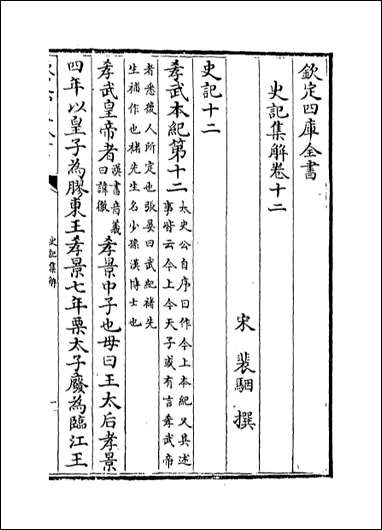 欽定四庫全書
史記集解卷十二
宋 裴駰 撰
史記十二
孝武本紀第十二 太史公自序曰作今上本紀又其述
事皆云今上今天子或有言孝武帝
者悉後人所定也張晏曰武紀褚先
生補作也褚先生名少孫漢博士也
孝武皇帝者 漢書音義
曰諱徹 孝景中子也母曰王太后孝景
四年以皇子為膠東王孝景七年栗太子廢為臨江王
史記集解